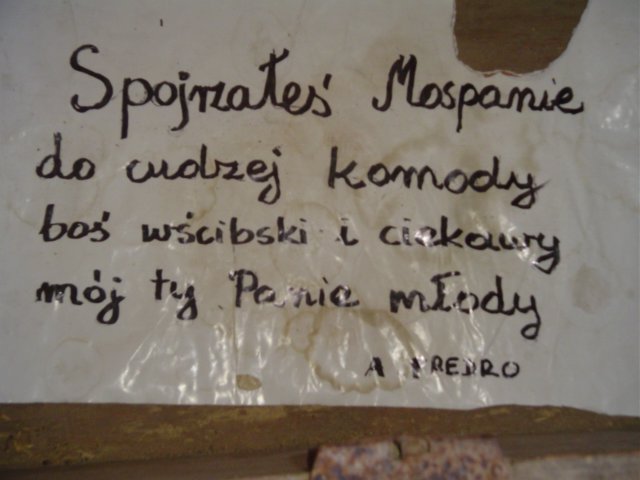 Spojrzałeś Mospanie
do cudzej komody
boś wścibski i ciekawy
mój ty Panie młody
A FREDRO